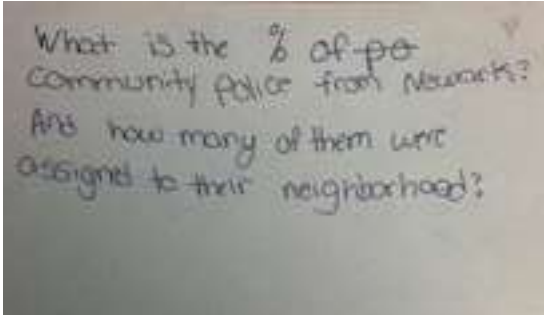 What is the % of po
community police from Newark?
And how many of them were
assigned to their neighborhood?